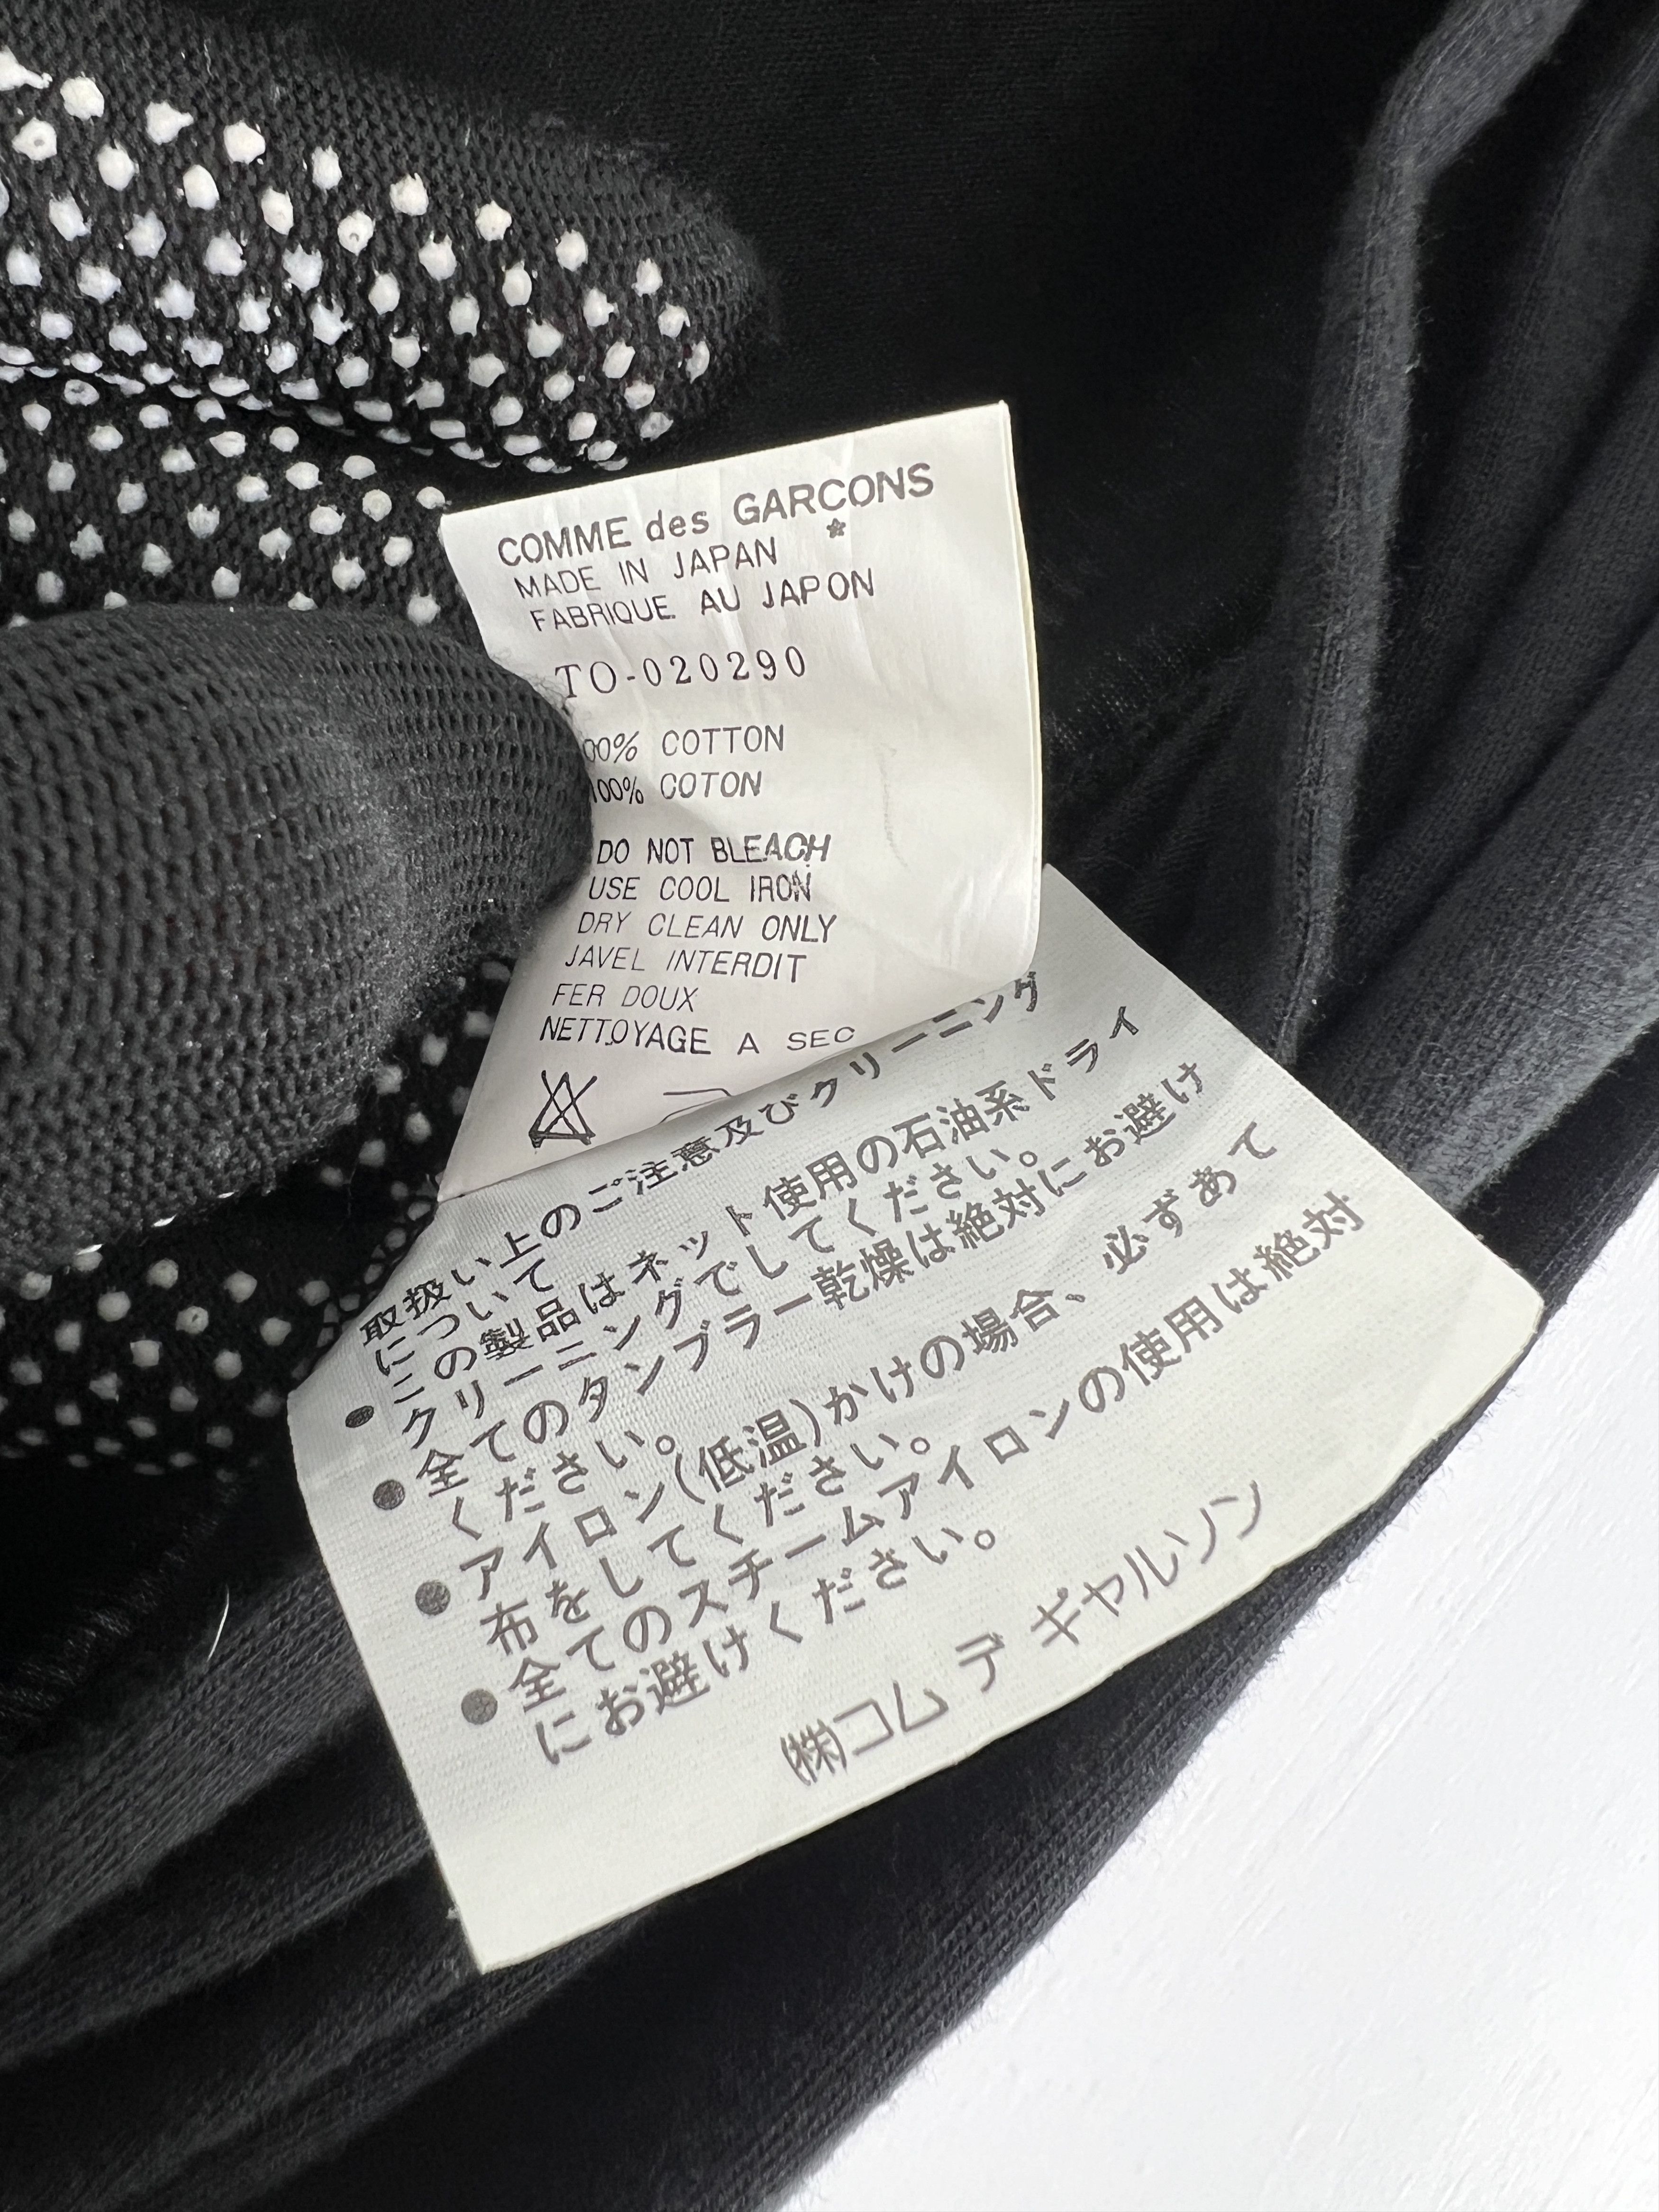 COMME des GARCONS
MADE IN JAPAN
FABRIQUE AU JAPON
TO-020290
00% COTTON
100% COTON
DO NOT BLEACH
USE COOL IRON
DRY CLEAN ONLY
JAVEL INTERDIT
FER DOUX
NETTOYAGE A SEC
取扱い上のご注意及びクリーニング
について
●この製品はネット使用の石油系ドライ
クリーニングでしてください。
●全てのタンブラー乾燥は絶対にお避け
ください。
●アイロン(低温)かけの場合、必ずあて
布をしてください。
●全てのスチームアイロンの使用は絶対
にお避けください。
㈱コム デ ギャルソン